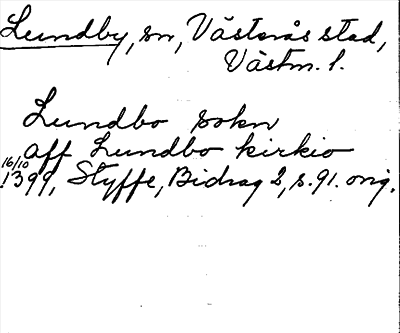 Lundby, sn, Västerås stad,
Västm. l.
Lundbo sokn
aff Lundbo kirkio
16/10 1399, Styffe, Bidrag 2, s. 91. orig.